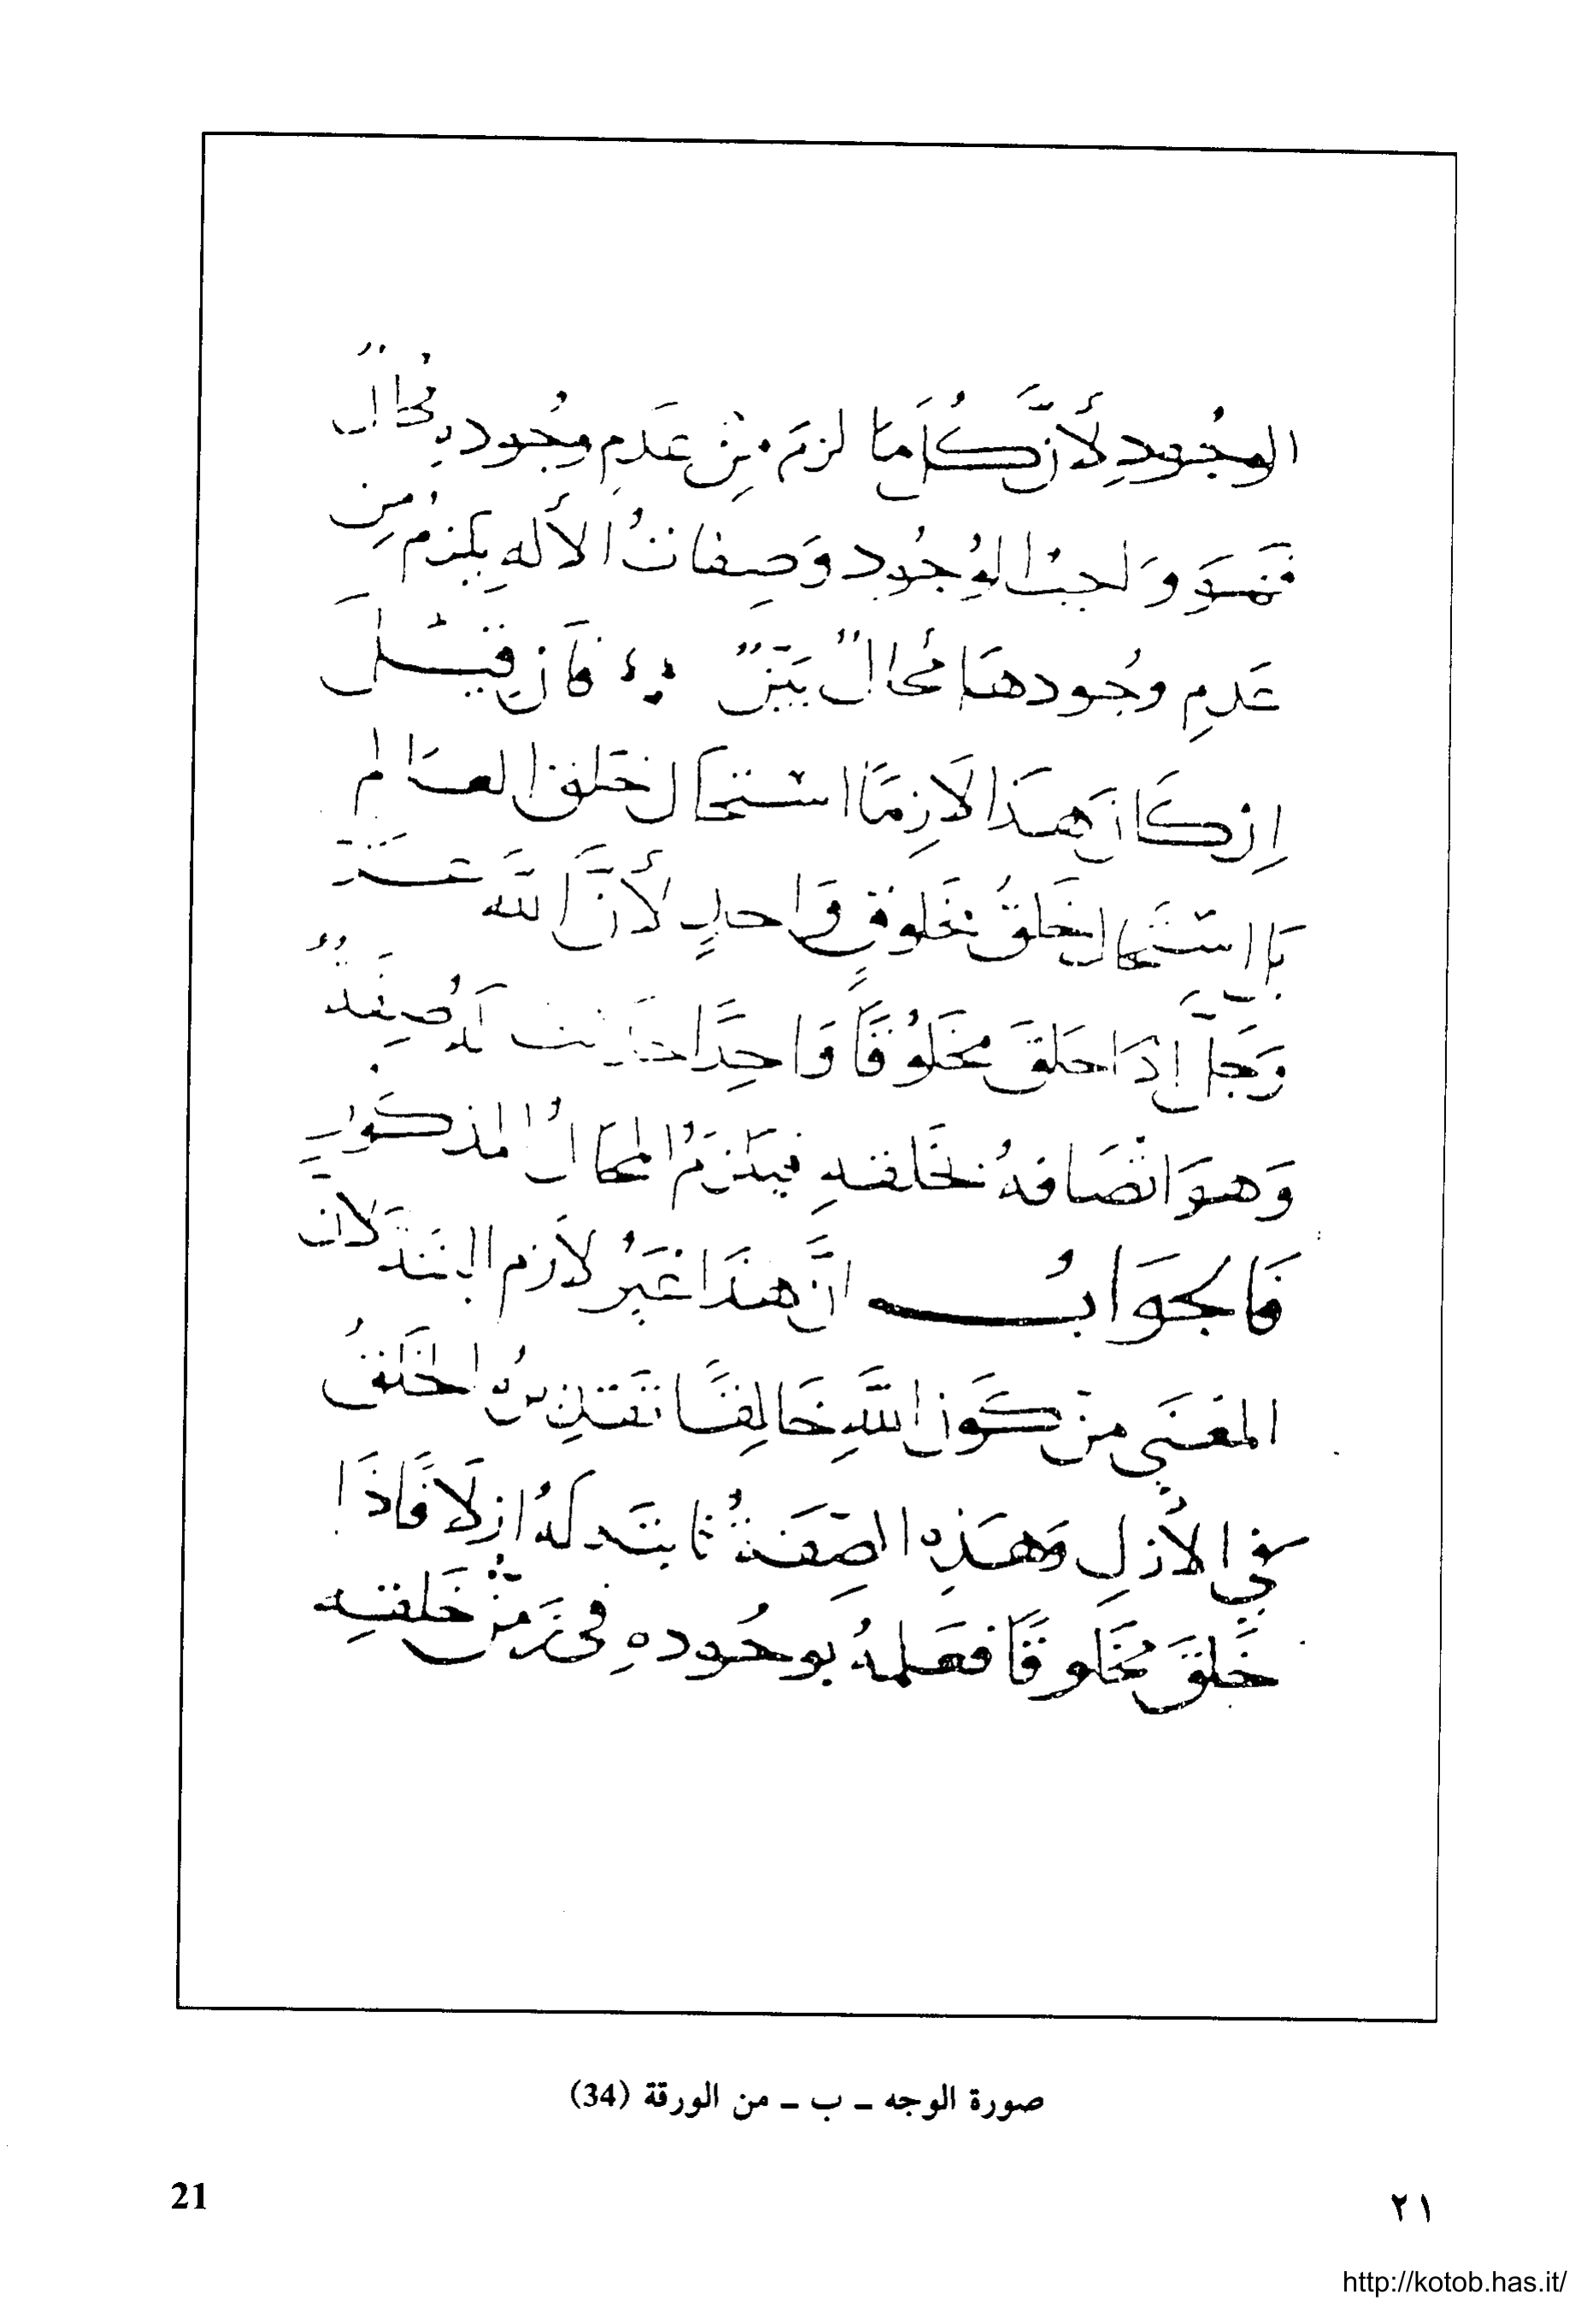 الوجُودِ لأنَّ كُلَ مَا لزمَ مِنْ عَدَمِ وجُوده مُحالٌ
فَهوَ وَاجبُ الوُجُود وَصِفاتُ الأله يَلزمُ مِن
عَدمِ وجُودهَا مُحالٌ بَيّنٌ فَأن قيْلَ
إن كَانَ هَذا لَازِمًا استحَال خَلقَ العَالم
بَل استَحَال خَلقُ مخلوقٍ وَاحدٍ لأنَّ اللَّه عَزَّ
وَجلَّ إذَا خلقَ مخلُوقًا وَاحِدًا حدَثت لَهُ صِفَةٌ
وَهوَ اتّصَافهُ بخَلقهِ فيَلزَمُ المحَالُ المذكورِ
فَالجوَابُ انَّ هَذَا غَيرُ لَازم البتَةَ لانَ
المعْنَي مِنْ كَون اللَّهِ خَالِقًا تقدِيرُه الخَلقُ
في الأزلِ وَهَذِه الصِفَةُ ثابتَه لَهُ ازلًا فَاذَا
خَلَقَ مخلوقًا فعَلمهُ بوجُودهِ في زمَنْ خَلقهِ
صورة الوجه - ب - من الورقة (34)
21
٢١
http://kotob.has.it/